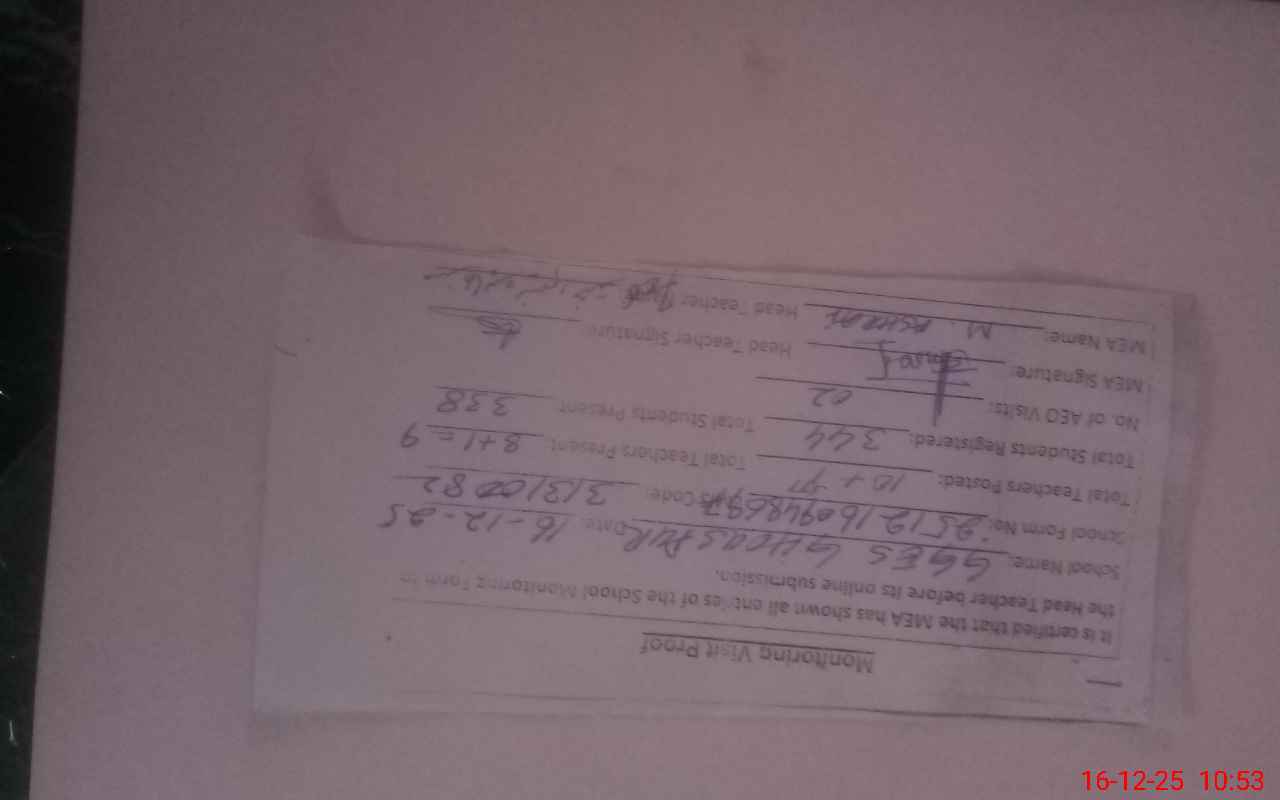 Monitoring Visit Proof
It is certified that the MEA has shown all entries of the School Monitoring Form to
the Head Teacher before its online submission.
School Name: GGES GHOUSPUR Date: 16-12-25
School Form No: 2512160948697 S Code: 31310082
Total Teachers Posted: 10 + Total Teachers Present 8+1=9
Total Students Registered: 344 Total Students Present 338
No. of AEO Visits: 02
MEA Signature: Head Teacher Signature:
MEA Name: M. ASHRAF Head Teacher
16-12-25 10:53